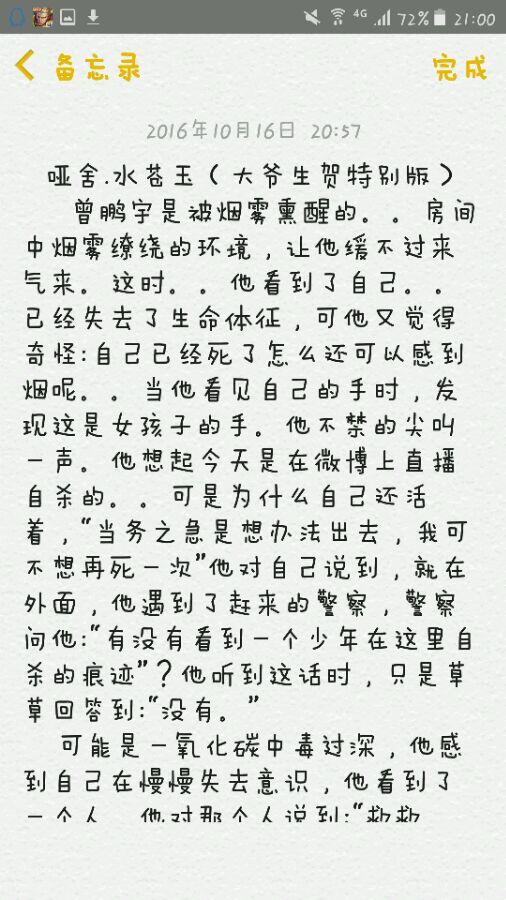 4G 72% 21:00
备忘录 完成
2016年10月16日 20:57
哑舍.水苍玉(大爷生贺特别版)
曾鹏宇是被烟雾熏醒的。。房间
中烟雾缭绕的环境，让他缓不过来
气来。这时。。他看到了自己。。
已经失去了生命体征，可他又觉得
奇怪:自己已经死了怎么还可以感到
烟呢。。当他看见自己的手时，发
现这是女孩子的手。他不禁的尖叫
一声。他想起今天是在微博上直播
自杀的。。可是为什么自己还活
着，“当务之急是想办法出去，我可
不想再死一次”他对自己说到，就在
外面，他遇到了赶来的警察，警察
问他:“有没有看到一个少年在这里自
杀的痕迹”？他听到这话时，只是草
草回答到:“没有。”
可能是一氧化碳中毒过深，他感
到自己在慢慢失去意识，他看到了
一个人 他对那个人说到:“救救